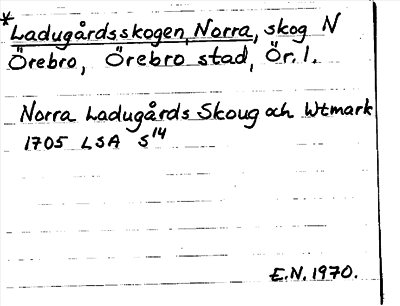 *Ladugårdsskogen, Norra, skog N
Örebro, Örebro stad, Ör. l.
Norra Ladugårds Skoug och Wtmark
1705 LSA S14
E.N. 1970.